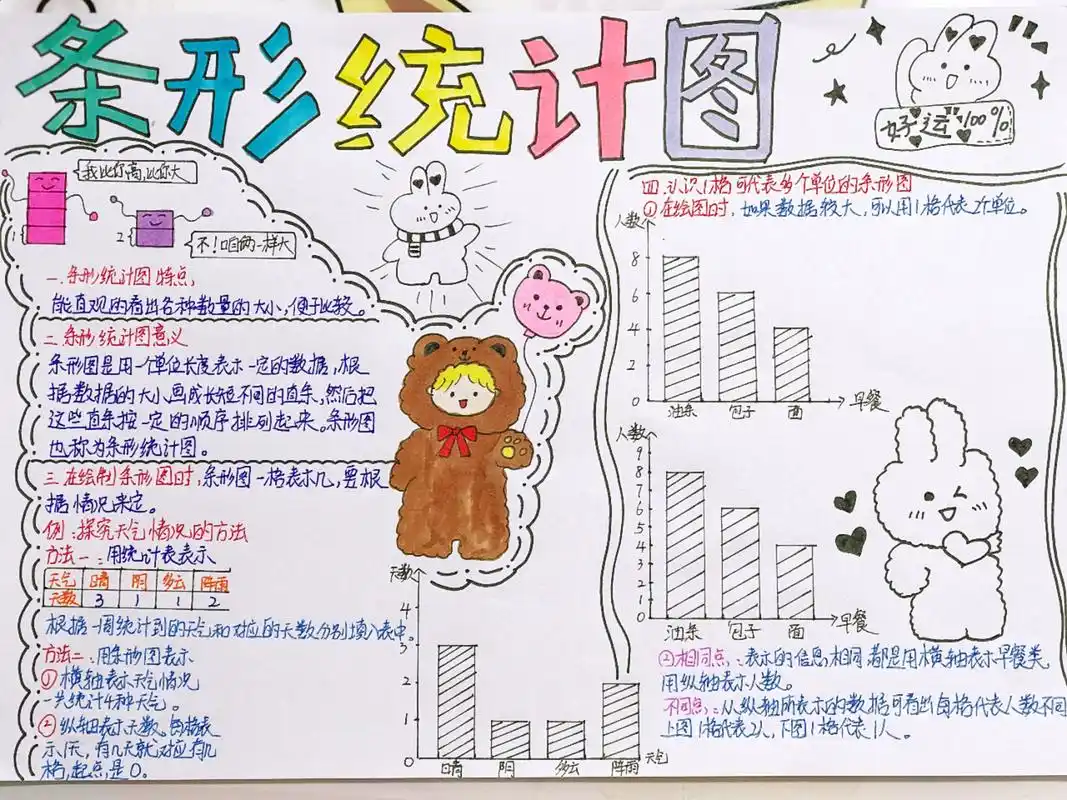 条形统计图
好运100%
我比你高,比你大
1
2
不!咱两一样大
一.条形统计图特点:
能直观的看出各种数量的大小,便于比较。
二.条形统计图意义
条形图是用一个单位长度表示一定的数据,根
据数据的大小画成长短不同的直条,然后把
这些直条按一定的顺序排列起来。条形图
也称为条形统计图。
三.在绘制条形图时,条形图一格表示几,要根
据情况来定。
例:探究天气情况的方法
方法一:用统计表表示
天气 晴 阴 多云 阵雨
天数 3 1 1 2
根据一周统计到的天气和对应的天数分别填入表中。
方法二:用条形图表示
①横轴表示天气情况
一共统计4种天气。
②纵轴表示天数。每格表
示1天,有几天就对应有几
格,起点是0。
天数
4
3
2
1
0
晴 阴 多云 阵雨 天气
四.认识1格可代表多个单位的条形图
①在绘图时,如果数据较大,可以用1格代表2个单位。
人数
8
6
4
2
0
油条 包子 面 早餐
人数
9
8
7
6
5
4
3
2
1
0
油条 包子 面 早餐
②相同点:表示的信息相同都是用横轴表示早餐类,
用纵轴表示人数。
不同点:从纵轴所表示的数据可看出每格代表人数不同
上图1格代表2人,下图1格代表1人。